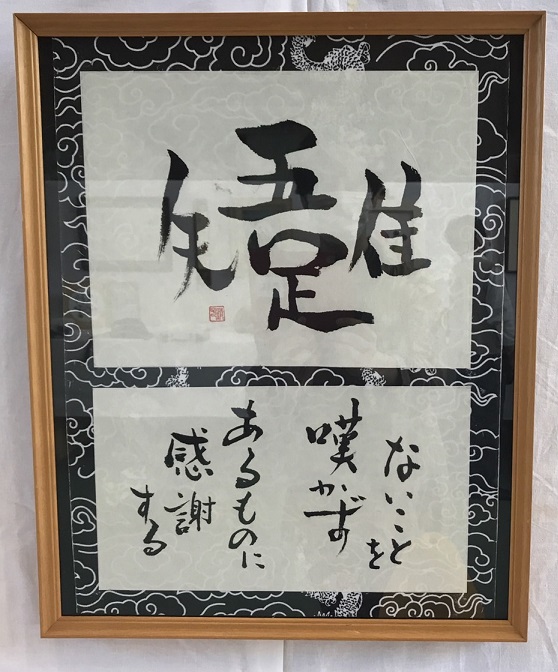 吾唯足知
ないことを
嘆かず
あるものに
感謝
する